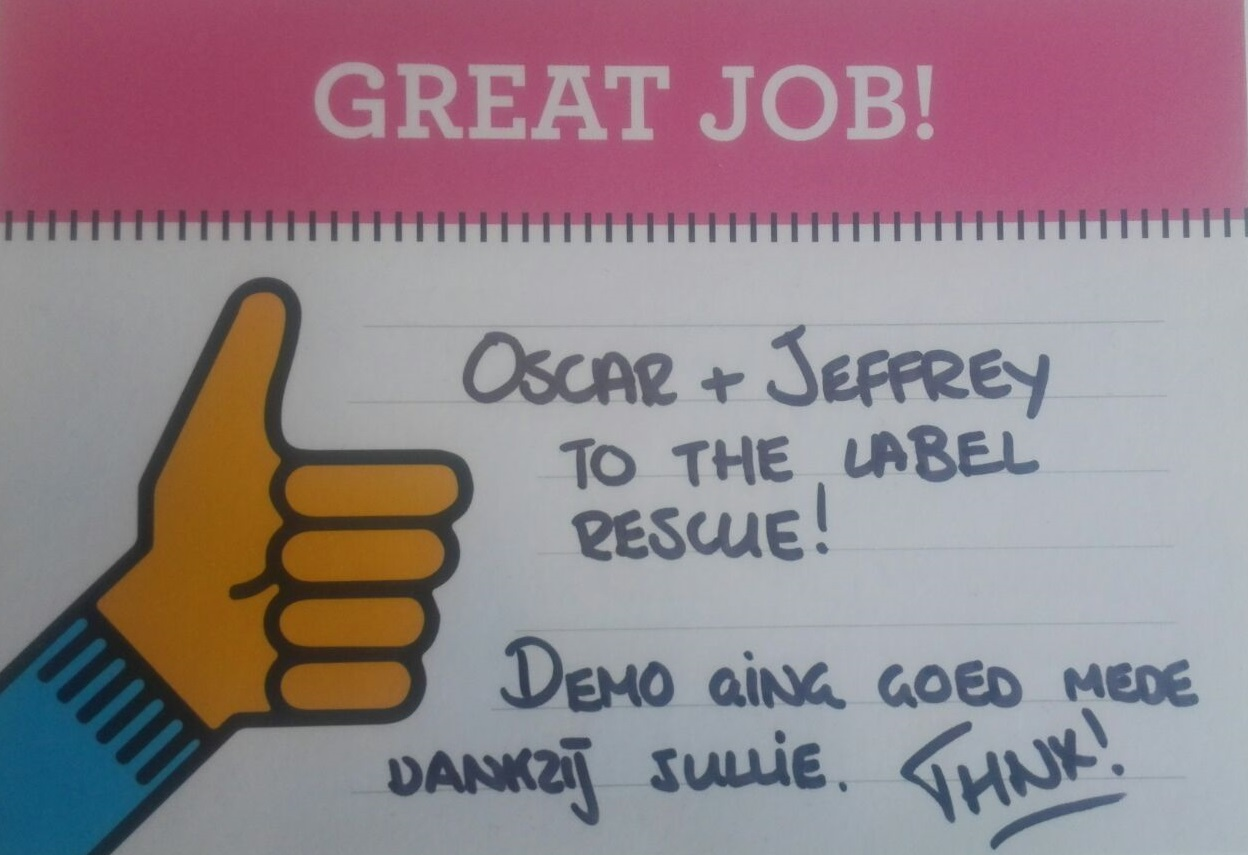 GREAT JOB!
OSCAR + JEFFREY
TO THE LABEL
RESCUE!
DEMO GING GOED MEDE
DANKZIJ JULLIE. THNX!